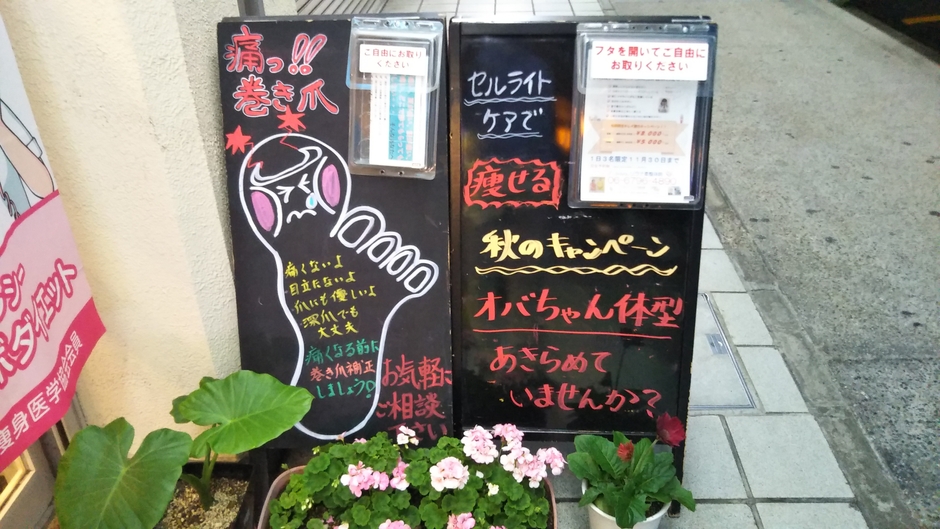 痛っ!!
巻き爪
ご自由にお取り
ください
痛くないよ
目立たないよ
爪にも優しいよ
深爪でも
大丈夫
痛くなる前に
巻き爪補正
しましょう!
お気軽に
ご相談
下さい
セルライト
ケアで
痩せる
フタを開いてご自由に
お取りください
1日3名限定11月30日まで
秋のキャンペーン
オバちゃん体型
あきらめて
いませんか?
痩身医学協会会員